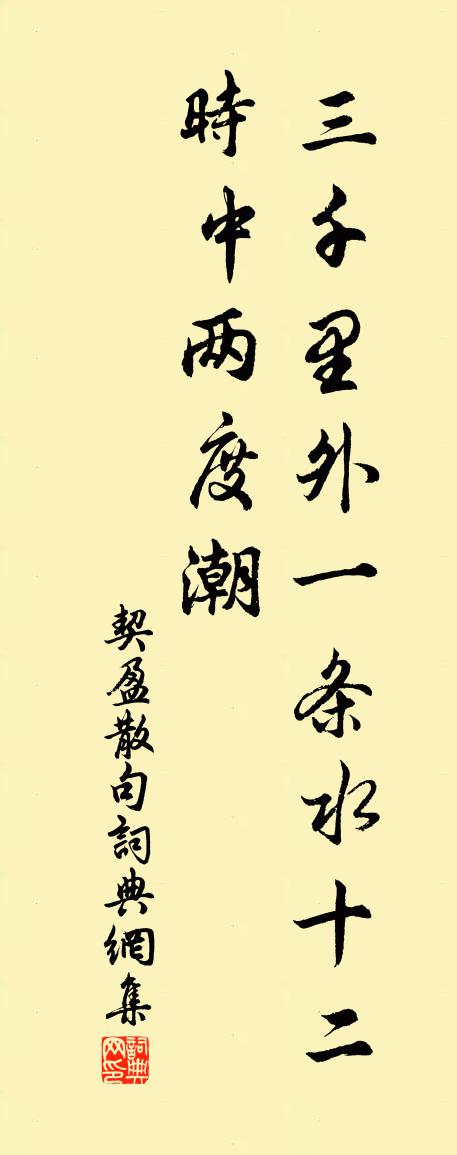 三千里外一条水十二
時中两度潮
契盈散句詞典網集
詞典网印